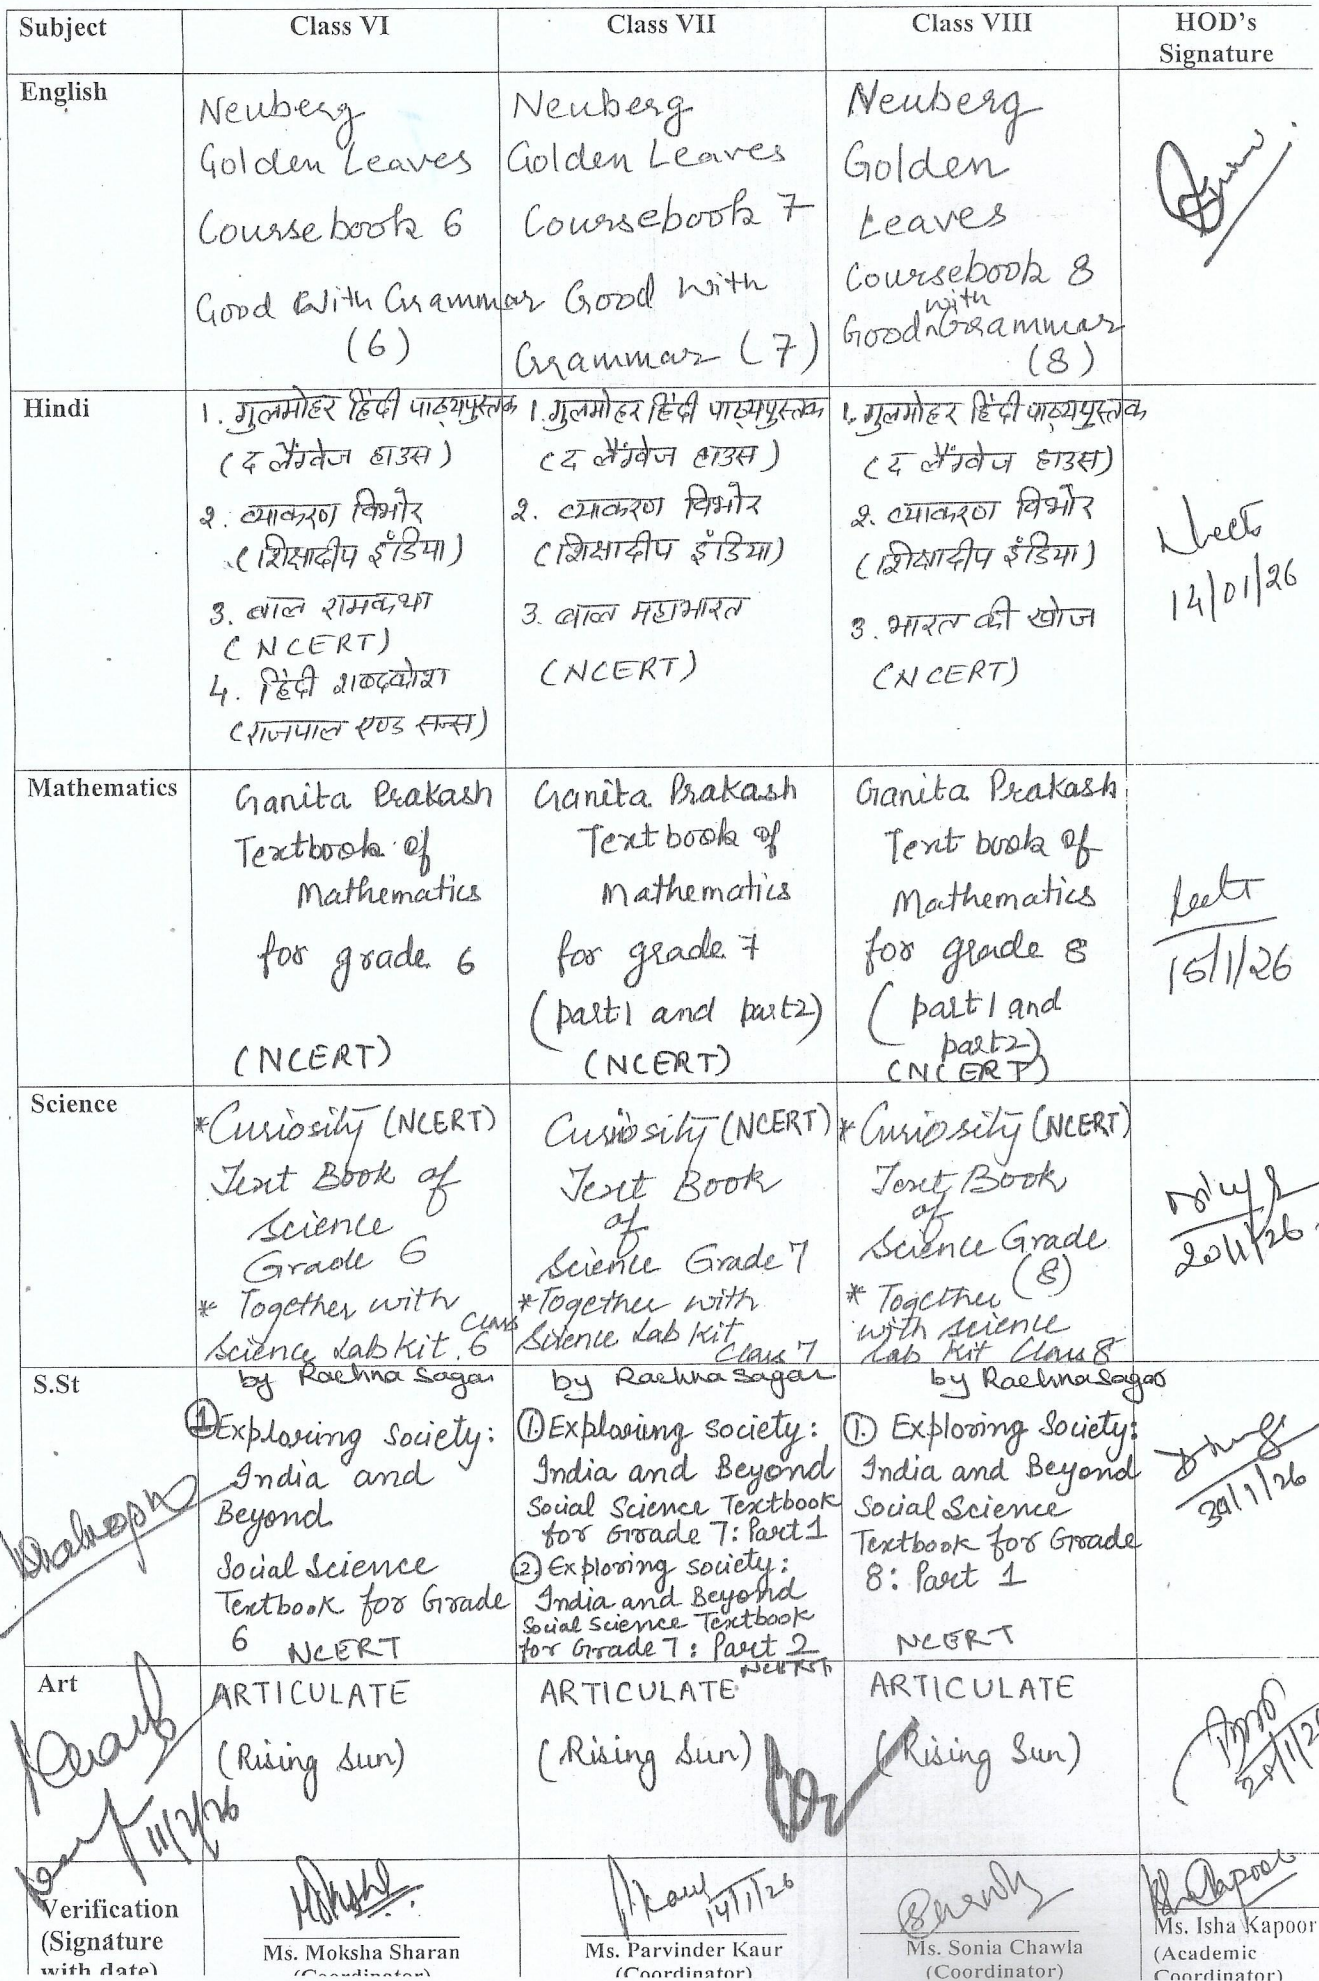 Subject
Class VI
Class VII
Class VIII
HOD's
Signature
English
Neuberg
Golden Leaves
Coursebook 6
Good With Grammar
(6)
Neuberg
Golden Leaves
Coursebook 7
Good With
Grammar (7)
Neuberg
Golden
Leaves
Coursebook 8
with
Good Grammar
(8)
Hindi
1. गुलमोहर हिंदी पाठ्यपुस्तक
(द लैंग्वेज हाउस)
२. व्याकरण विभोर
(शिक्षादीप इंडिया)
3. बाल रामकथा
(NCERT)
4. हिंदी शब्दकोश
(राजपाल एण्ड सन्स)
1. गुलमोहर हिंदी पाठ्यपुस्तक
(द लैंग्वेज हाउस)
२. व्याकरण विभोर
(शिक्षादीप इंडिया)
3. बाल महाभारत
(NCERT)
1. गुलमोहर हिंदी पाठ्यपुस्तक
(द लैंग्वेज हाउस)
२. व्याकरण विभोर
(शिक्षादीप इंडिया)
3. भारत की खोज
(NCERT)
14/01/26
Mathematics
Ganita Prakash
Textbook of
Mathematics
for grade 6
(NCERT)
Ganita Prakash
Textbook of
Mathematics
for grade 7
(part1 and part2)
(NCERT)
Ganita Prakash
Text book of
Mathematics
for grade 8
(part 1 and
part2)
(NCERT)
15/1/26
Science
*Curiosity (NCERT)
Text Book of
Science
Grade 6
* Together with
Science Lab Kit Class 6
by Rachna Sagar
Curiosity (NCERT)
Text Book
of
Science Grade 7
*Together with
Science Lab Kit
Class 7
by Rachna Sagar
* Curiosity (NCERT)
Text Book
of
Science Grade
(8)
* Together
with science
Lab Kit Class 8
by Rachna Sagar
20/1/26
S.St
① Exploring Society:
India and
Beyond
Social Science
Textbook for Grade
6 NCERT
①. Exploring Society:
India and Beyond
Social Science Textbook
for Grade 7: Part 1
②. Exploring Society:
India and Beyond
Social Science Textbook
for Grade 7: Part 2
NCERT
①. Exploring Society:
India and Beyond
Social Science
Textbook for Grade
8: Part 1
NCERT
Art
ARTICULATE
(Rising Sun)
ARTICULATE
(Rising Sun)
ARTICULATE
(Rising Sun)
11/2/26
Verification
(Signature
with date)
Moksha
Ms. Moksha Sharan
(Coordinator)
14/1/26
Ms. Parvinder Kaur
(Coordinator)
Ms. Sonia Chawla
(Coordinator)
Ms. Isha Kapoor
(Academic
Coordinator)